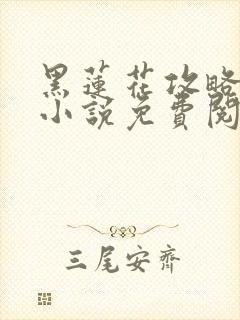 黑蓮花攻略
小說免費閱
三尾安齊